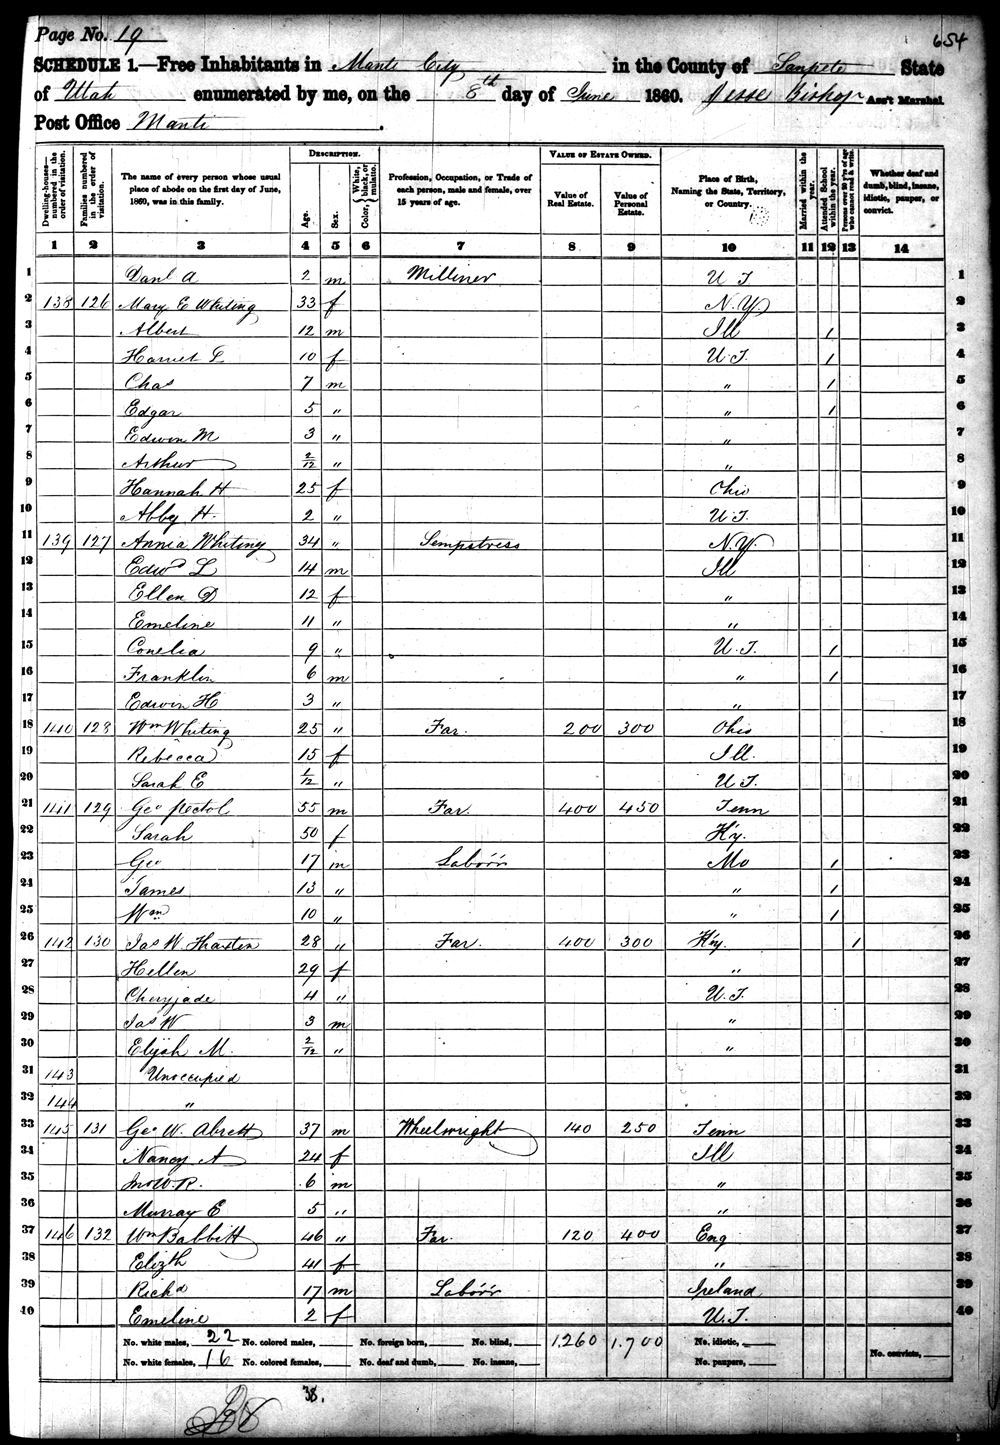 Page No. 19
654
SCHEDULE 1.—Free Inhabitants in Manti City in the County of Sanpete State
of Utah enumerated by me, on the 8th day of June 1860. Jesse Bishop Ass't Marshal.
Post Office Manti.
Dwelling-houses—numbered in the order of visitation.
Families numbered in the order of visitation.
The name of every person whose usual place of abode on the first day of June, 1860, was in this family.
DESCRIPTION.
Age.
Sex.
Color, White, black, or mulatto.
Profession, Occupation, or Trade of each person, male and female, over 15 years of age.
VALUE OF ESTATE OWNED.
Value of Real Estate.
Value of Personal Estate.
Place of Birth, Naming the State, Territory, or Country.
Married within the year.
Attended School within the year.
Persons over 20 y'rs of age who cannot read & write.
Whether deaf and dumb, blind, insane, idiotic, pauper, or convict.
1 2 3 4 5 6 7 8 9 10 11 12 13 14
1 Danl A 2 m Milliner U T 1
2 138 126 Mary E Whiting 33 f N.Y. 2
3 Albert 12 m Ill 1 3
4 Harriet L 10 f U.T. 1 4
5 Chas 7 m " 1 5
6 Edgar 5 " " 1 6
7 Edwin M 3 " " 7
8 Arthur 2/12 " " 8
9 Hannah H 25 f Ohio 9
10 Abby H. 2 " U.T. 10
11 139 127 Annia Whiting 34 " Sempstress N.Y. 11
12 Edwd L 14 m Ill 12
13 Ellen D 12 f " 13
14 Emeline 11 " " 14
15 Conelia 9 " U.T. 1 15
16 Franklin 6 m " 1 16
17 Edwin H 3 " " 17
18 140 128 Wm Whiting 25 " Far. 200 300 Ohio 18
19 Rebecca 15 f Ill. 19
20 Sarah E 1/12 " U.T. 20
21 141 129 Geo Pectol 55 m Far. 400 450 Tenn 21
22 Sarah 50 f Ky. 22
23 Geo 17 m Labór'r Mo 1 23
24 James 13 " " 1 24
25 Wm 10 " " 1 25
26 142 130 Jas W. Thaxten 28 " Far. 400 300 Ky. 1 26
27 Hellen 29 f " 27
28 Cheryjade 4 " U.T. 28
29 Jas W 3 m " 29
30 Elijah M. 2/12 " " 30
31 143 Unoccupied 31
32 144 " 32
33 145 131 Geo W. Abrett 37 m Wheelwright 140 250 Tenn 33
34 Nancy A 24 f Ill 34
35 Jno W. R. 6 m " 35
36 Murray E 5 " " 36
37 146 132 Wm Babbitt 46 " Far. 120 400 Eng 37
38 Elizth 41 f " 38
39 Richd 17 m Labór'r Ireland 39
40 Emeline 2 f U.T. 40
No. white males, 22 No. colored males, No. foreign born, No. blind, 1,260 1.700 No. idiotic,
No. white females, 16 No. colored females, No. deaf and dumb, No. insane, No. paupers, No. convicts,
38.